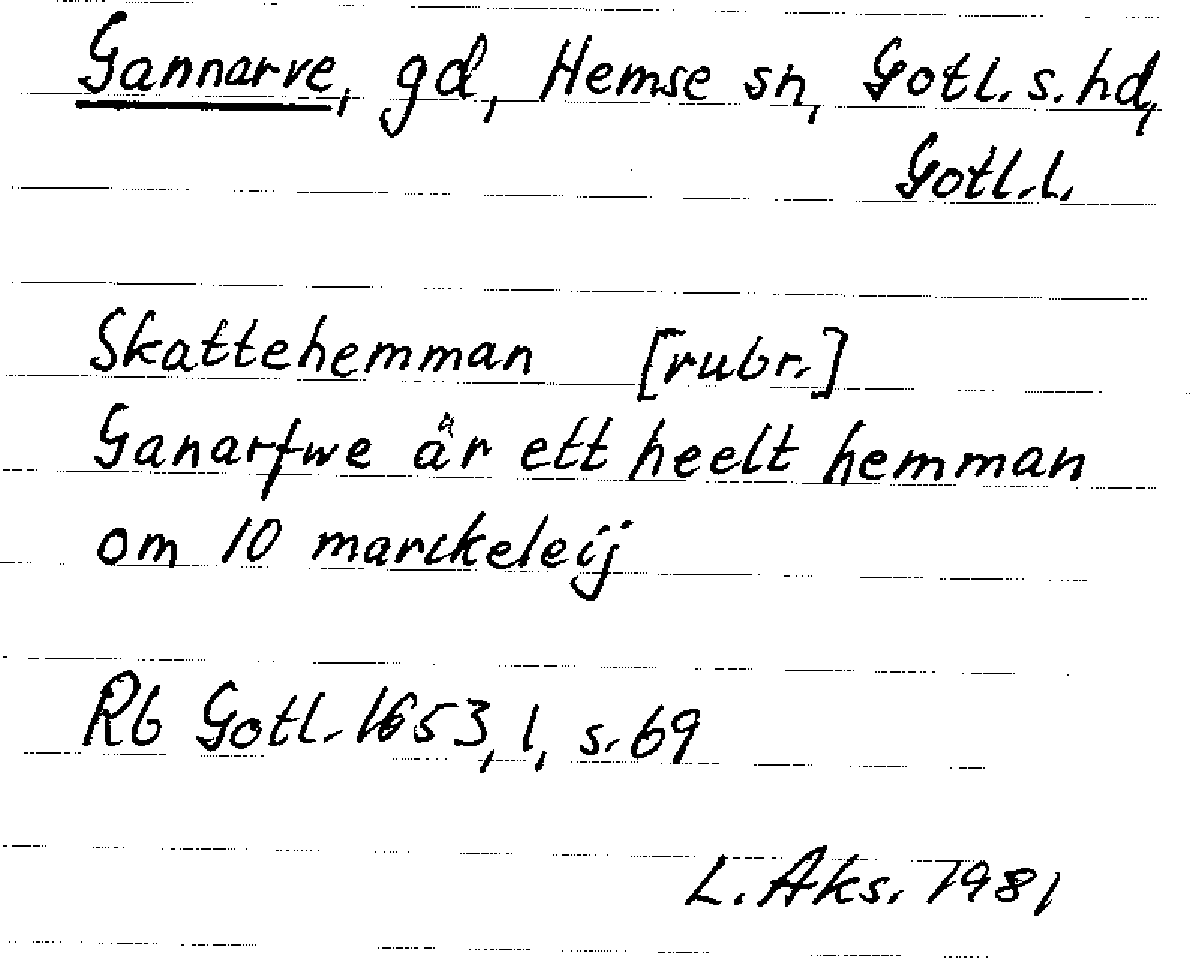 Gannarve, gd, Hemse sn, Gotl. s. hd,
Gotl. l.
Skattehemman [rubr.]
Ganarfwe är ett heelt hemman
om 10 marckeleij
Rb Gotl. 1653, 1, s. 69
L. Aks. 1981